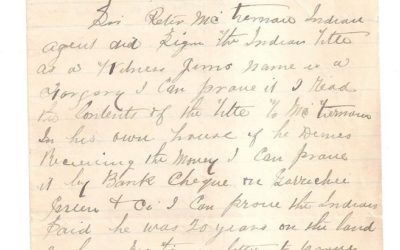 Sir Peter McTiernan Indian
agent did Sign the Indian Title
as a Witness Jims Name is a
Forgory I Can prove it I Read
the Contents of the Title to McTiernan
In his own house if he Denies
Receiving the Money I Can prove
it by Bank Cheque on
Green & Co I Can prove the Indian
Said he was 20 years on the land